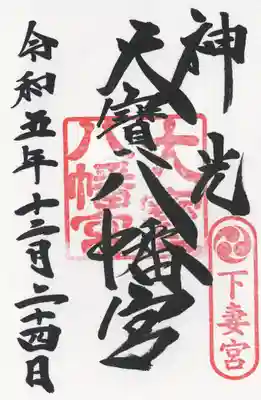 神光
大寳八幡宮
大寳
八幡宮
下妻宮
令和五年十二月二十四日